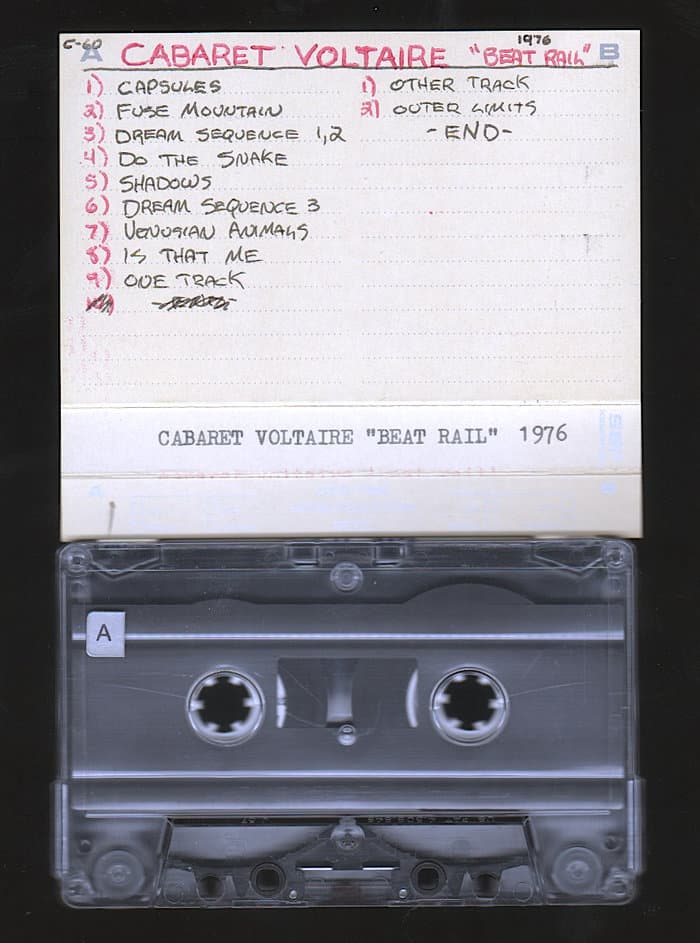 C-60
A CABARET VOLTAIRE "BEAT RAIL" B
1976
1) CAPSULES
2) FUSE MOUNTAIN
3) DREAM SEQUENCE 1,2
4) DO THE SNAKE
5) SHADOWS
6) DREAM SEQUENCE 3
7) VENUSIAN ANIMALS
8) IS THAT ME
9) ONE TRACK
1) OTHER TRACK
2) OUTER LIMITS
-END-
CABARET VOLTAIRE "BEAT RAIL" 1976
A